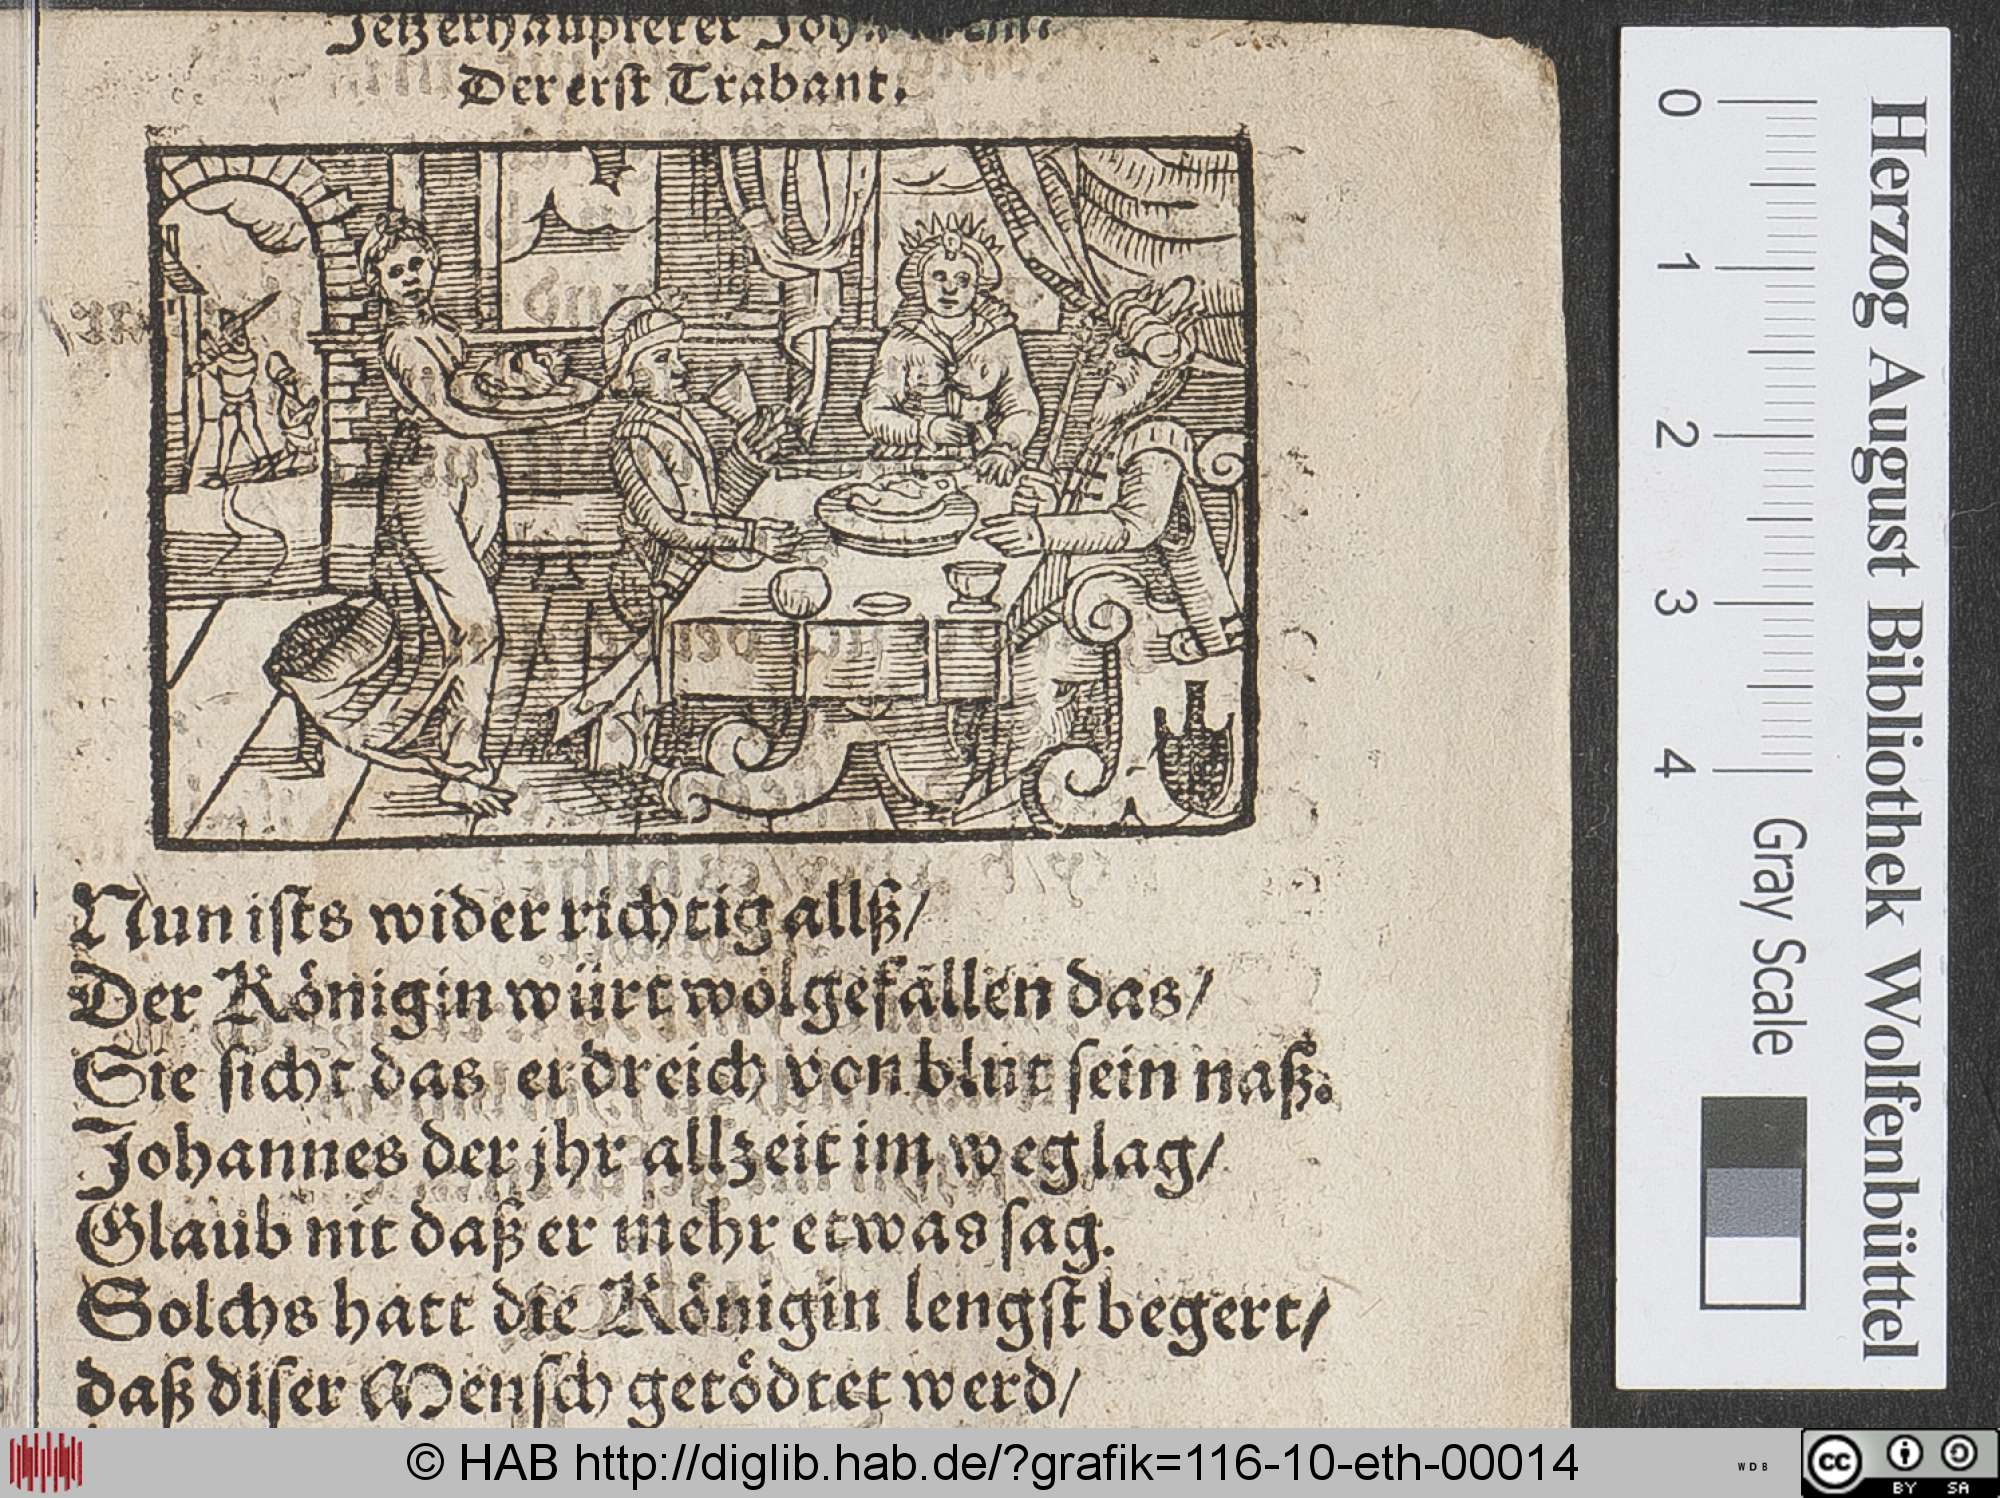 Jetz enthaupter er Joh
Der erst Trabant.
Nun ists wider richtig allß/
Der Königin würt wolgefallen das/
Sie sicht das erdreich von blut sein naß.
Johannes der jhr allzeit im weg lag/
Glaub nit daß er mehr etwas sag.
Solchs hatt die Königin lengst begert/
daß diser Mensch getödtet werd/
0 1 2 3 4 Gray Scale
Herzog August Bibliothek Wolfenbüttel
© HAB http://diglib.hab.de/?grafik=116-10-eth-00014
WDB
cc BY SA